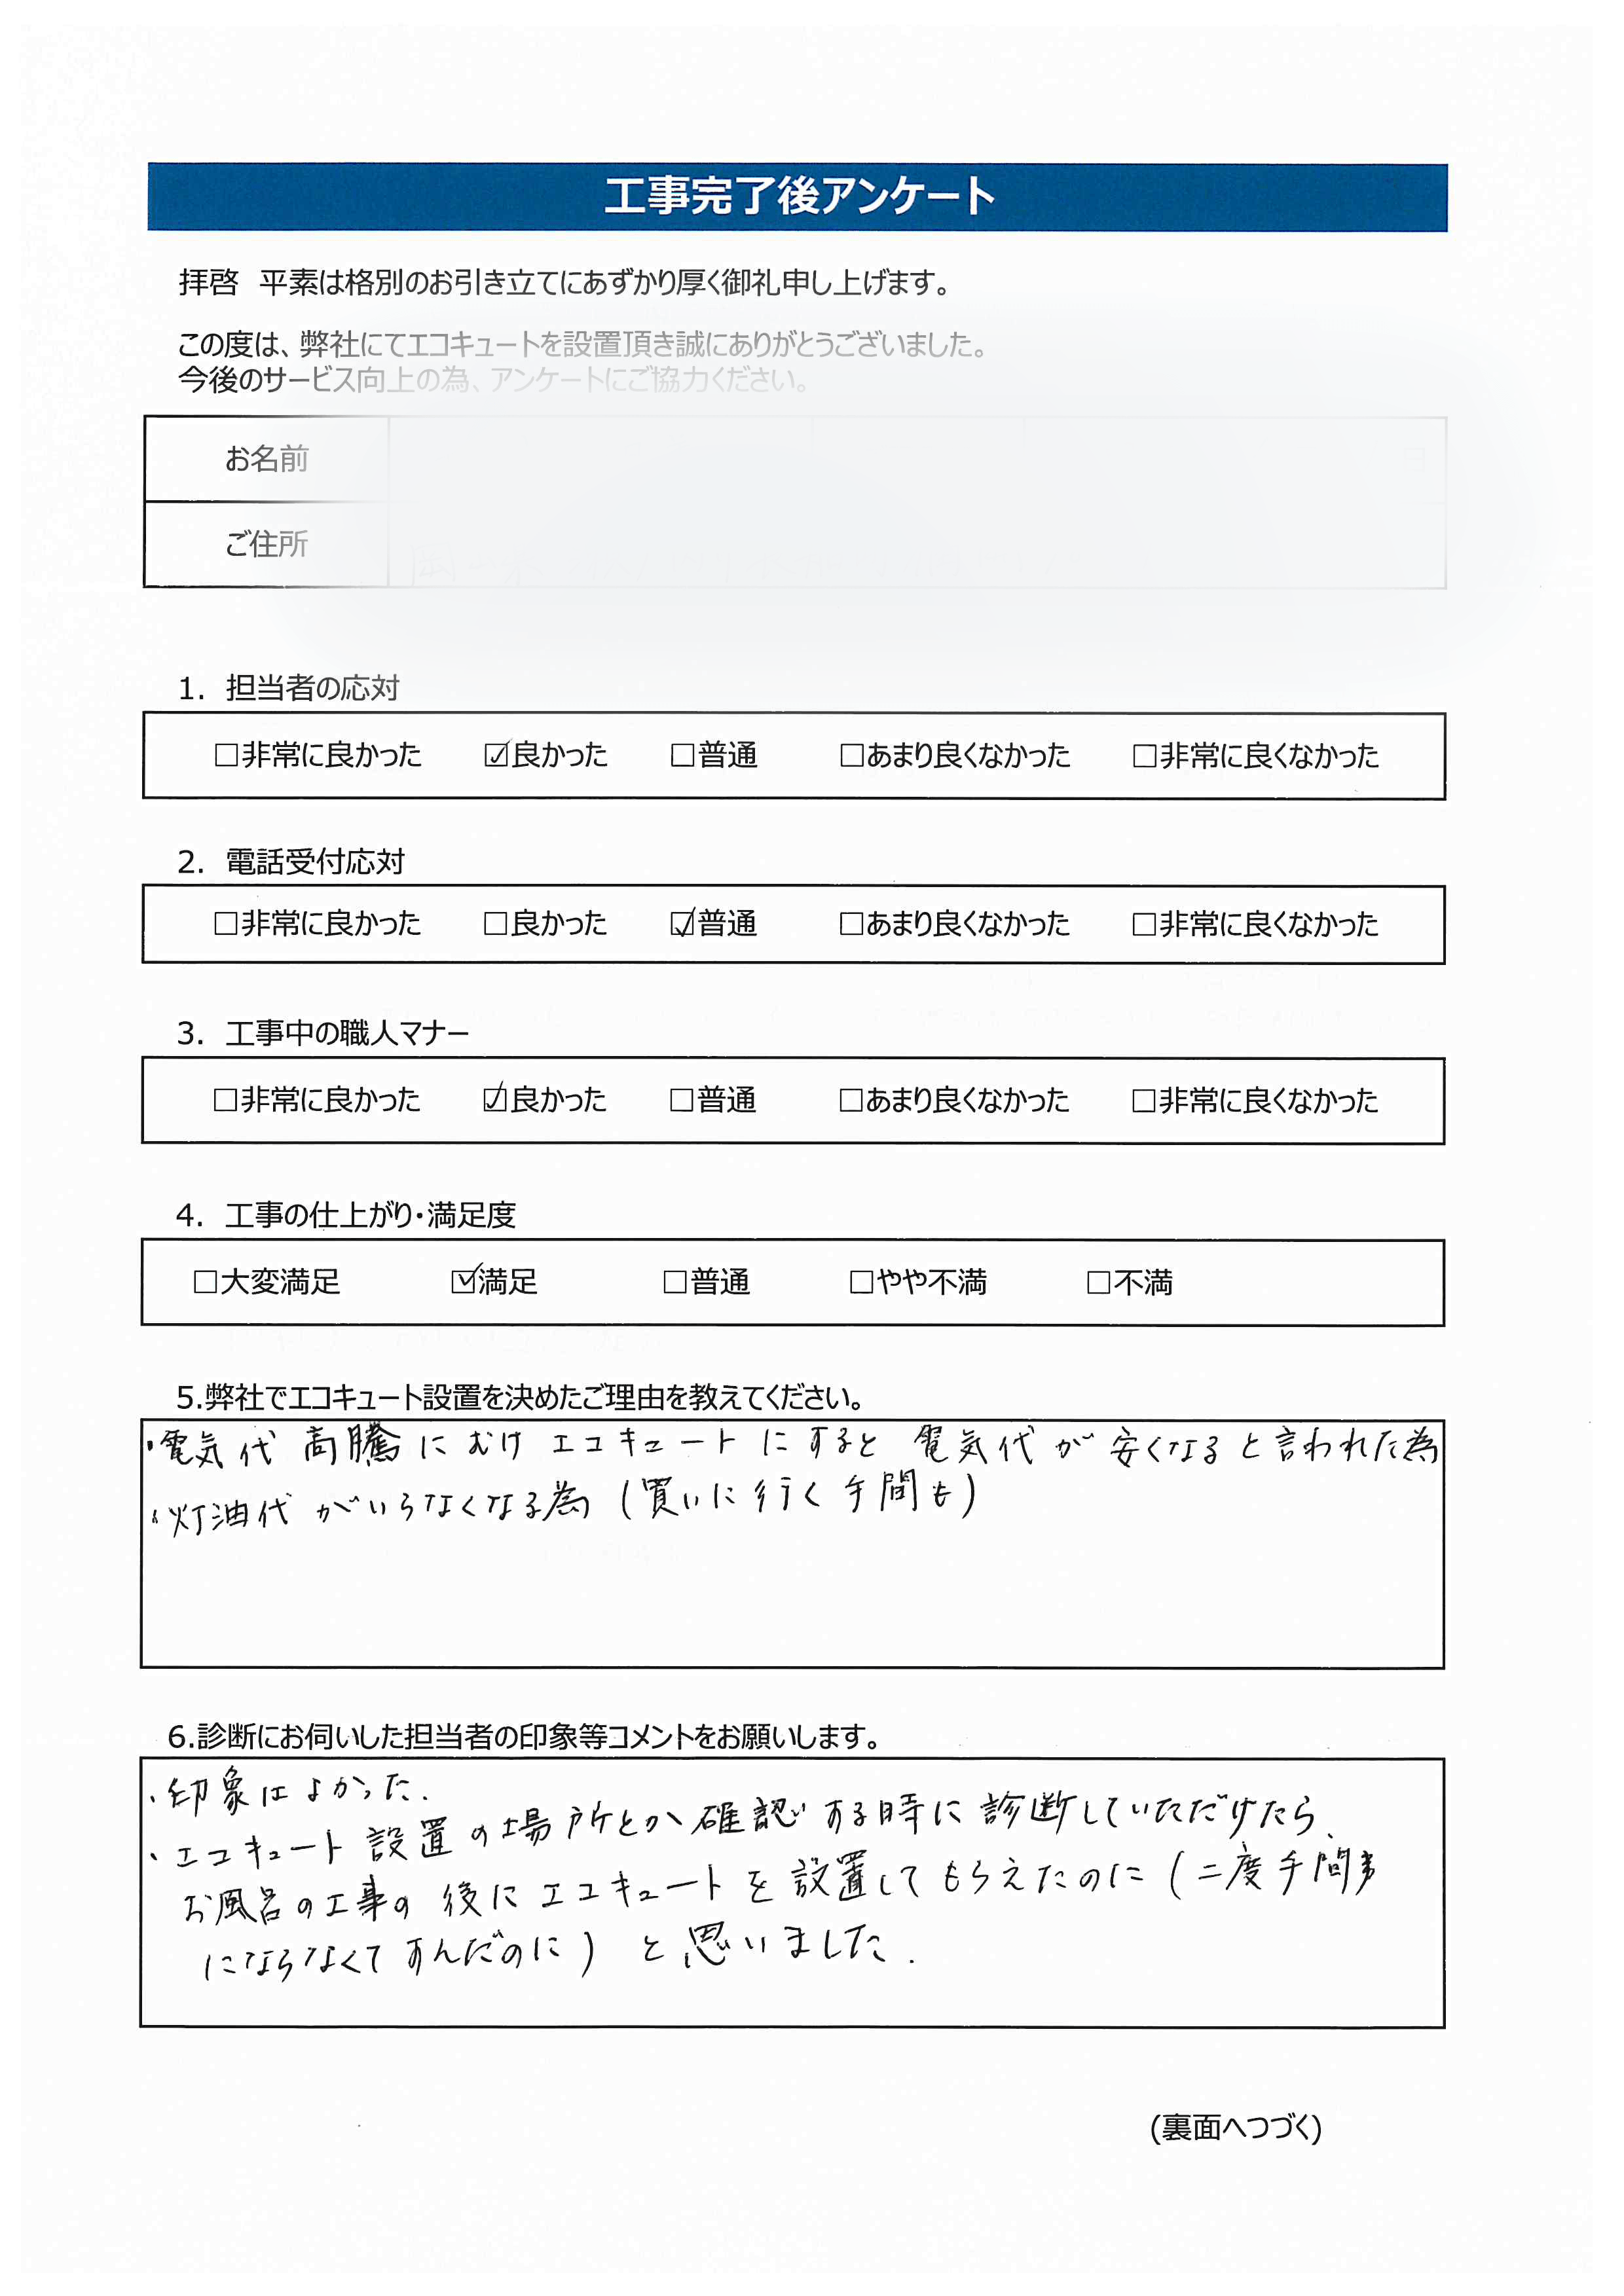 工事完了後アンケート
拝啓　平素は格別のお引き立てにあずかり厚く御礼申し上げます。
この度は、弊社にてエコキュートを設置頂き誠にありがとうございました。
今後のサービス向上の為、アンケートにご協力ください。
お名前
ご住所
1. 担当者の応対
□非常に良かった ☑良かった □普通 □あまり良くなかった □非常に良くなかった
2. 電話受付応対
□非常に良かった □良かった ☑普通 □あまり良くなかった □非常に良くなかった
3. 工事中の職人マナー
□非常に良かった ☑良かった □普通 □あまり良くなかった □非常に良くなかった
4. 工事の仕上がり・満足度
□大変満足 ☑満足 □普通 □やや不満 □不満
5.弊社でエコキュート設置を決めたご理由を教えてください。
・電気代 高騰にむけ エコキュートにすると 電気代が 安くなると言われた為
・灯油代がいらなくなる為 (買いに行く手間も)
6.診断にお伺いした担当者の印象等コメントをお願いします。
・印象はよかった.
・エコキュート設置の場所とか確認する時に診断していただけたら、
お風呂の工事の後にエコキュートを設置してもらえたのに (二度手間
にならなくてすんだのに) と思いました.
(裏面へつづく)